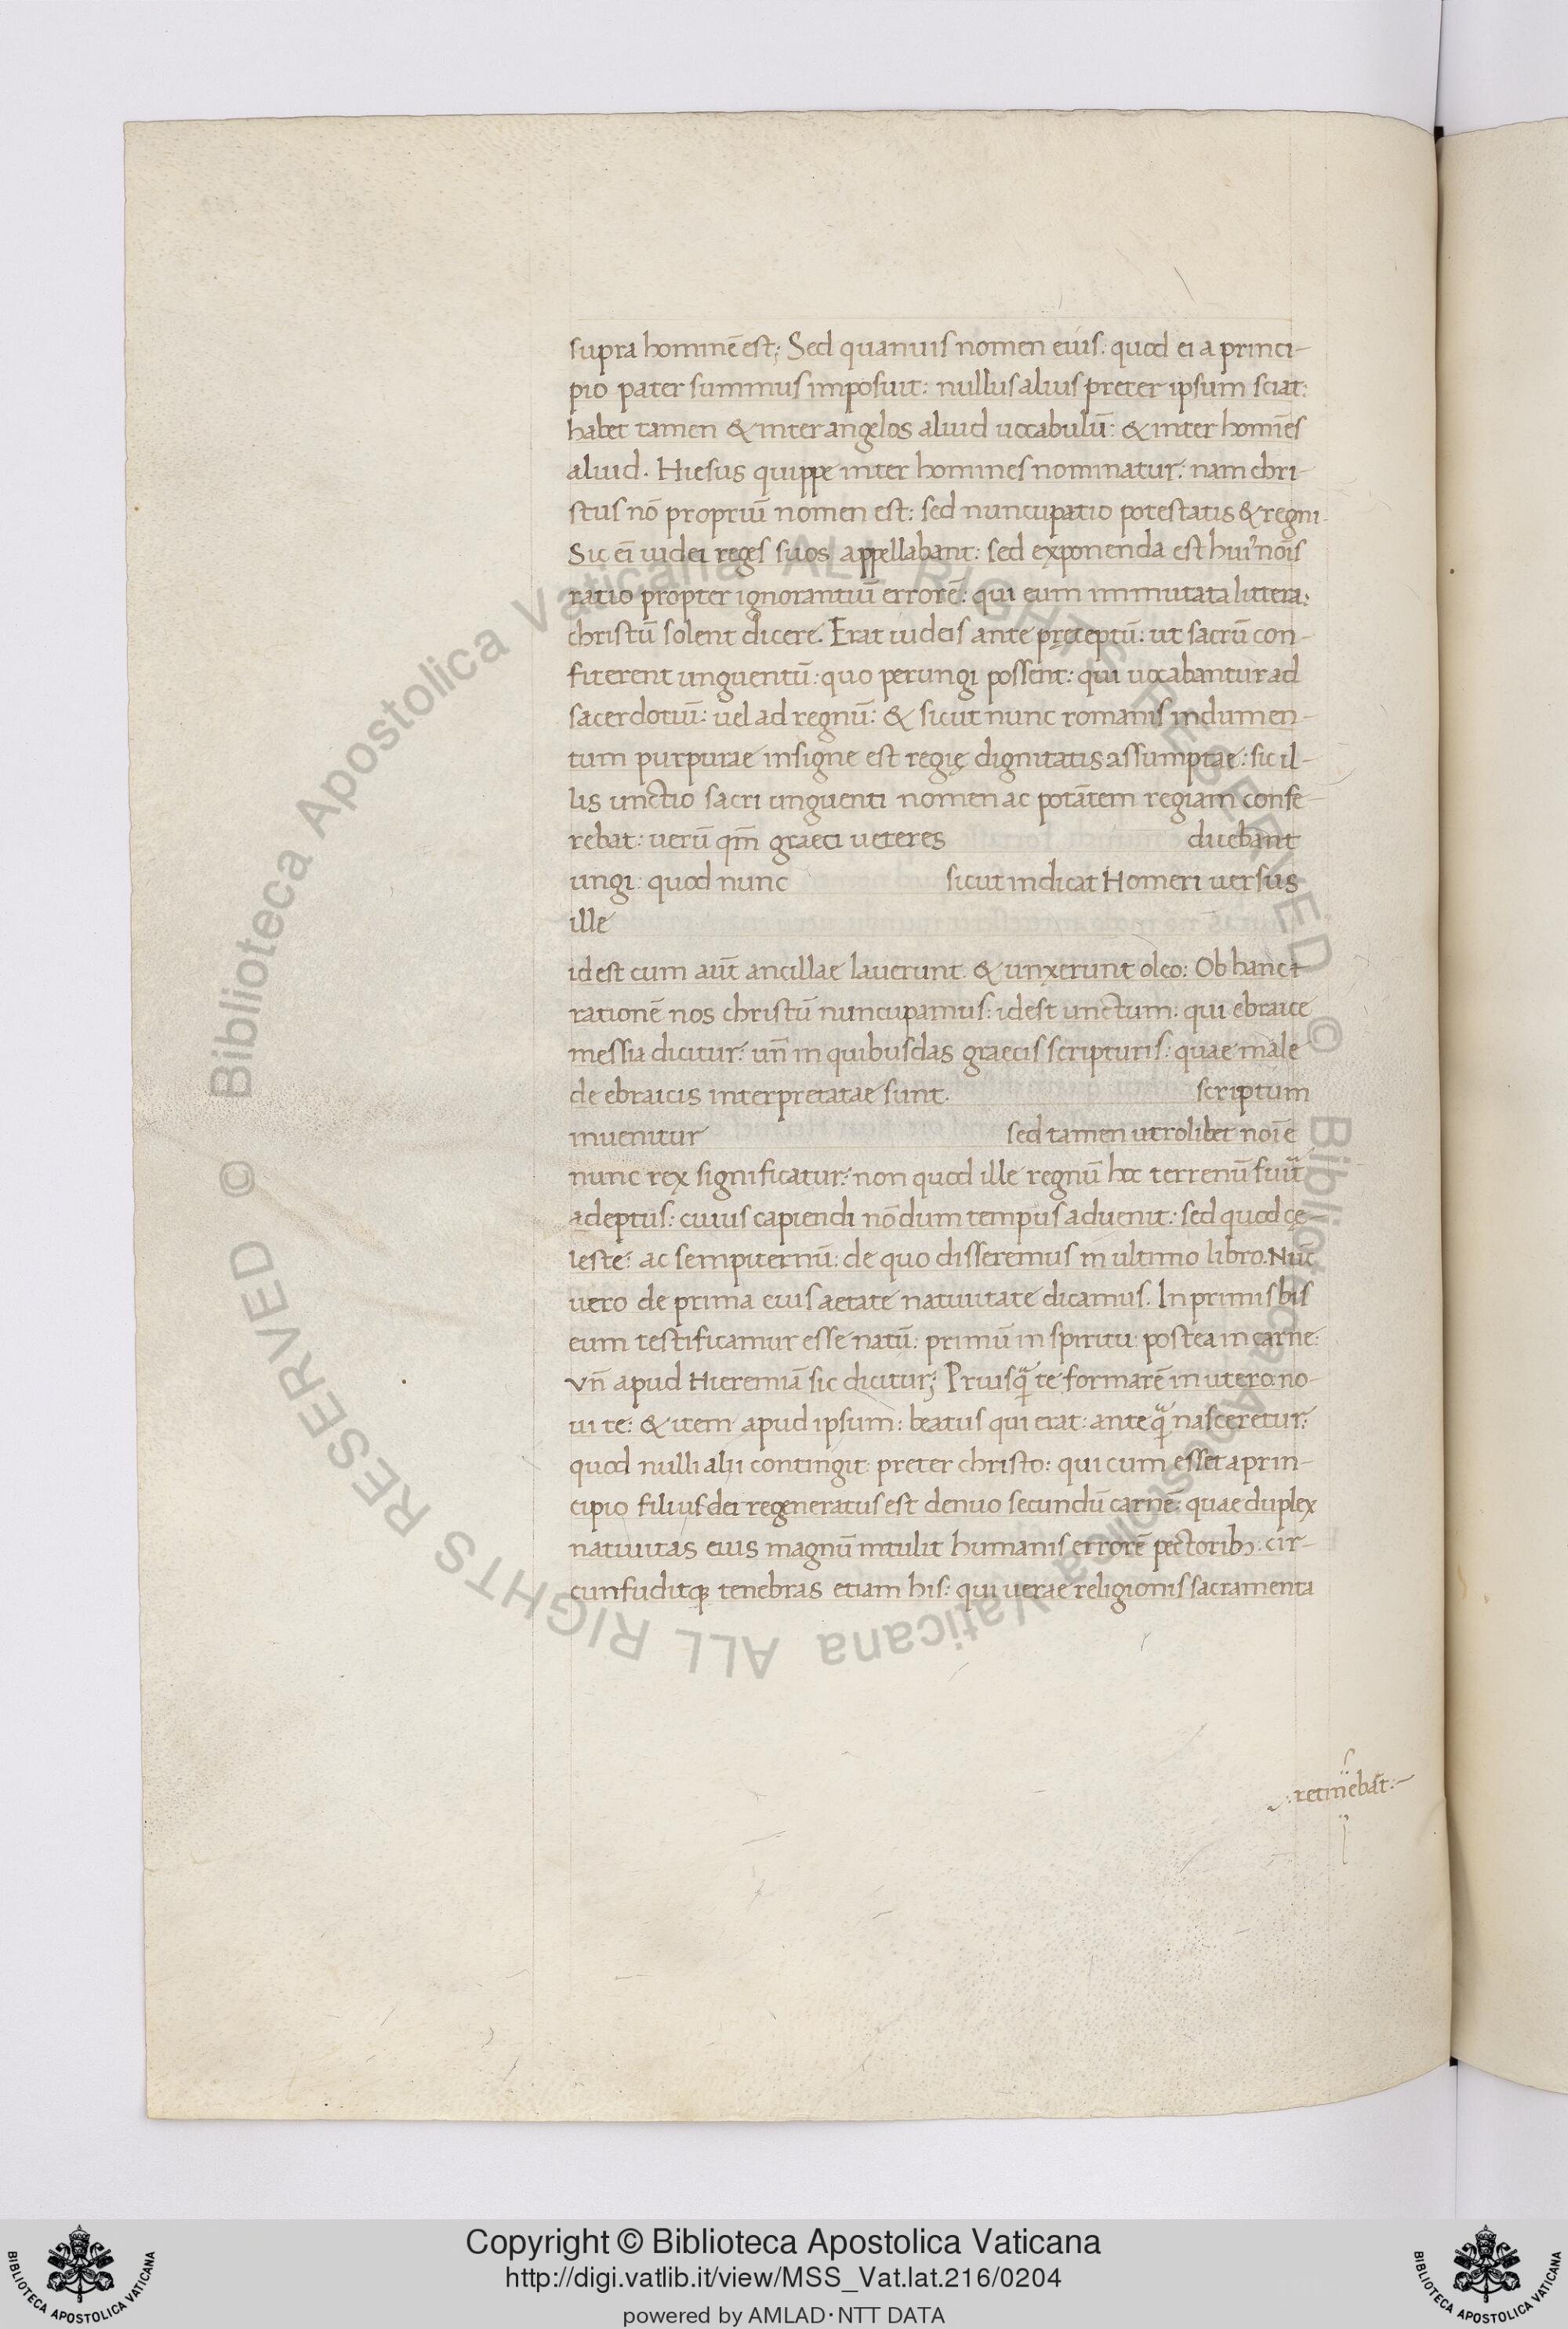 supra hominē est; Sed quanuis nomen eius: quod ei a princi-
pio pater summus imposuit: nullus alius preter ipsum sciat:
habet tamen & inter angelos aliud uocabulū: & inter homīes
aliud. Hiesus quippe inter homines nominatur: nam chri-
stus nō propriū nomen est: sed nuncupatio potestatis & regni.
Sic eī iudei reges suos appellabant: sed exponenda est huiꝰ noīs
ratio propter ignorantiū errorē: qui eum immutata littera:
christū solent dicere. Erat iudeis ante pręceptū: ut sacrū con-
fiterent unguentū: quo perungi possent: qui uocabantur ad
sacerdotiū: uel ad regnū: & sicut nunc romanis indumen-
tum purpurae insigne est regię dignitatis assumptae: sic il-
lis unctio sacri unguenti nomen ac potātem regiam confe-
rebat: uerū qm̄ graeci ueteres duebant
ungi: quod nunc sicut indicat Homeri uersus
ille
id est cum aūt ancillae lauerunt & unxerunt oleo: Ob hanc
rationē nos christū nuncupamus: id est unctum: qui ebraice
messia dicitur: un̄ in quibusdas graecis scripturis: quae male
de ebraicis interpretatae sunt. scriptum
inuenitur sed tamen utrolibet noīe
nunc rex significatur: non quod ille regnū hoc terrenū fuīt
adeptus: cuius capiendi nōdum tempus aduenit: sed quod cę
leste: ac sempiternū: de quo disseremus in ultimo libro. Nūc
uero de prima eius aetate natiuitate dicamus. In primis bis
eum testificamur esse natū: primū in spiritu: postea in carne:
vn̄ apud Hieremiā sic dicitur; Priusq̄ te formarē in utero: no-
ui te: & item apud ipsum: beatus qui erat: ante q̄ nasceretur:
quod nulli alii contingit: preter christo: qui cum esset a prin-
cipio filius dei regeneratus est denuo secundū carnē: quae duplex
natiuitas eius magnū intulit humanis errorē pectoribꝫ: cir-
cunfuditqꝫ tenebras etiam his: qui uerae religionis sacramenta
.retinebāt:
© Biblioteca Apostolica Vaticana ALL RIGHTS RESERVED © Biblioteca Apostolica Vaticana ALL RIGHTS RESERVED
Copyright © Biblioteca Apostolica Vaticana
http://digi.vatlib.it/view/MSS_Vat.lat.216/0204
powered by AMLAD·NTT DATA
BIBLIOTECA APOSTOLICA VATICANA
BIBLIOTECA APOSTOLICA VATICANA